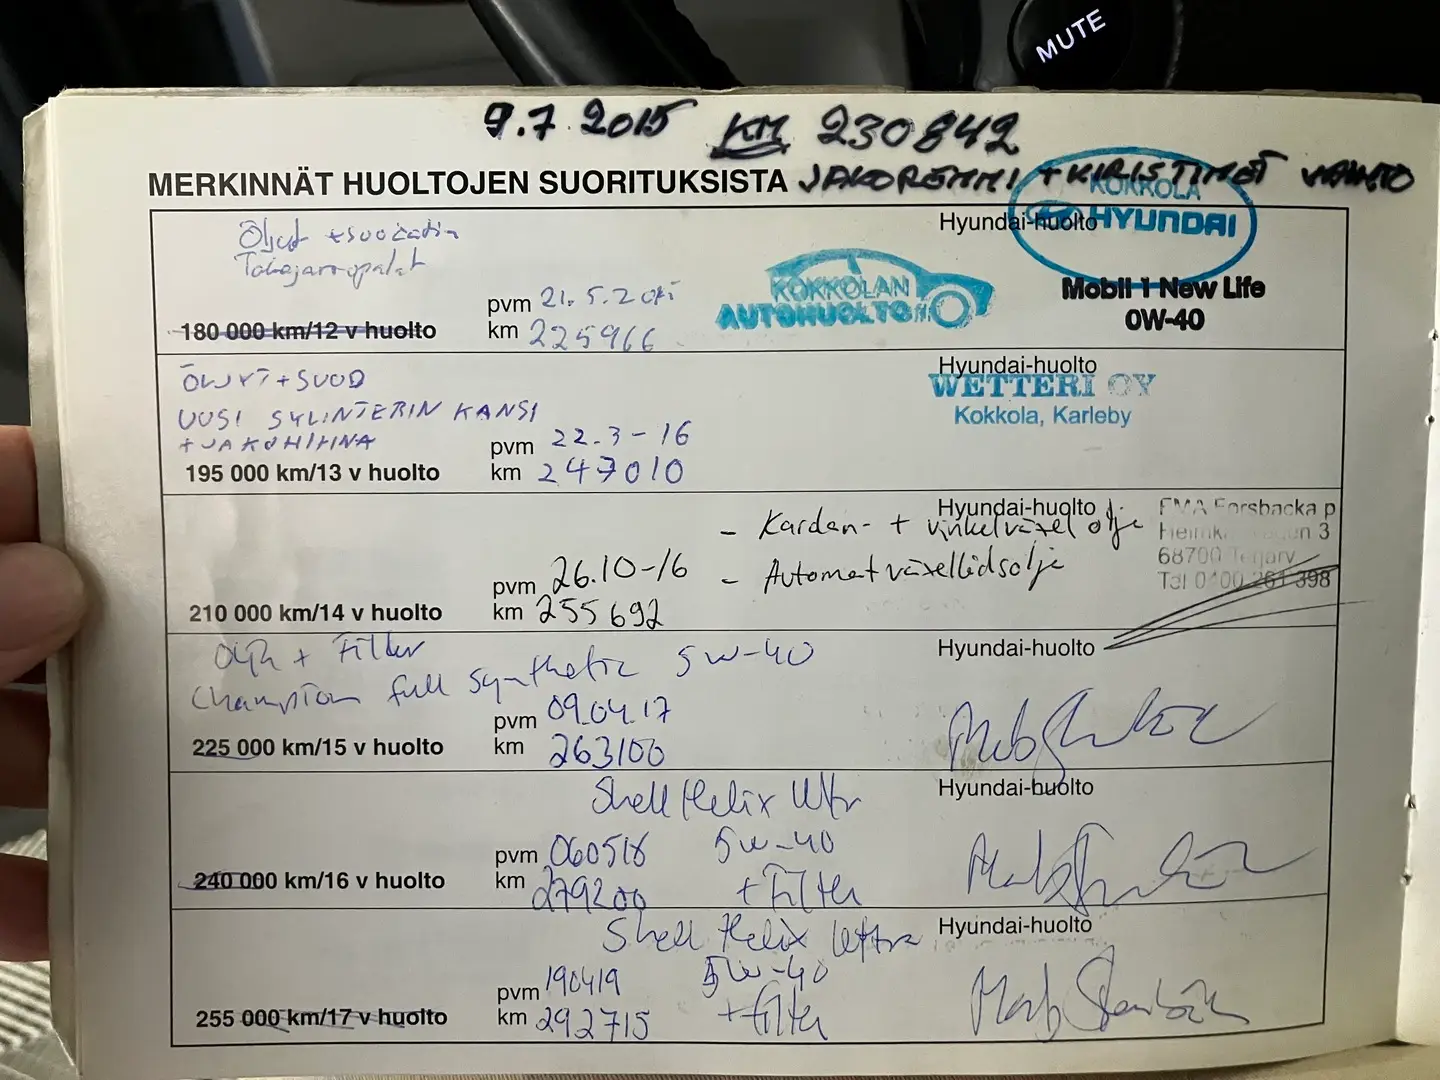 MUTE
9.7.2015 KM 230842
MERKINNÄT HUOLTOJEN SUORITUKSISTA JAKOREMMI + KIRISTIMET VAIHTO
Öljyt + suodatin
Takajarrupalat
180 000 km/12 v huolto
pvm 21.5.2015
km 225966
KOKKOLAN
AUTOHUOLTO
Hyundai-huolto
KOKKOLA
HYUNDAI
Mobil 1 New Life
0W-40
ÖLJYT + SUOD
UUSI SYLINTERIN KANSI
+ JAKOHIHNA
195 000 km/13 v huolto
pvm 22.3-16
km 247010
Hyundai-huolto
WETTERI OY
Kokkola, Karleby
210 000 km/14 v huolto
pvm 26.10-16
km 255692
- Kardan- + vinkelväxel olje
- Automatväxellådsolje
Hyundai-huolto
FMA Forsbacka p
3
68700 Terjärv
Tel 0400 261 398
Olja + Filter
Champion full synthetic 5W-40
225 000 km/15 v huolto
pvm 09.04.17
km 263100
Hyundai-huolto
Shell Helix Ultra
5W-40
+ Filter
240 000 km/16 v huolto
pvm 060518
km 279200
Hyundai-huolto
Shell Helix Ultra
5W-40
+ filter
255 000 km/17 v huolto
pvm 190419
km 292715
Hyundai-huolto